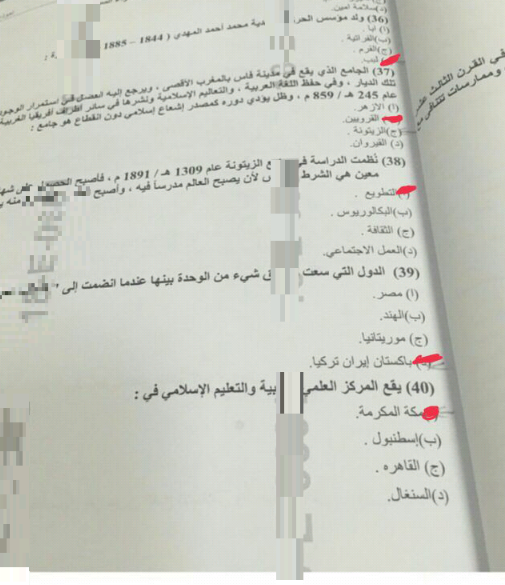 د)سلامة امين.
(36) ولد مؤسس الحر دية محمد أحمد المهدي ( 1844 – 1885
أ) أبا .
ب)الغزالية .
ج)الخرم .
لبب.
(37) الجامع الذي يقع في مدينة فاس بالمغرب الأقصى ، ويرجع إليه الفضل في استمرار الوجود
تلك الديار ، وفي حفظ اللغة العربية ، والتعاليم الإسلامية ونشرها في سائر أطراف أفريقيا الغربية
عام 245 هـ / 859 م ، وظل يؤدي دوره كمصدر إشعاع إسلامي دون انقطاع هو جامع :
أ) الأزهر.
القرويين.
ج)الزيتونة .
د) القيروان.
(38) نُظمت الدراسة في ع الزيتونة عام 1309 هـ / 1891 م ، فأصبح الحصول على شها
معين هي الشرط لأن يصبح العالم مدرساً فيه ، وأصبح منه
التطويع .
ب)البكالوريوس .
ج) الثقافة .
د)العمل الاجتماعي.
(39) الدول التي سعت ق شيء من الوحدة بينها عندما انضمت إلى "
أ) مصر.
ب)الهند.
ج) موريتانيا.
باكستان إيران تركيا.
(40) يقع المركز العلمي بية والتعليم الإسلامي في :
مكة المكرمة.
ب)إسطنبول .
ج) القاهره .
د)السنغال.
في القرن الثالث عشر
وممارسات تتنافى